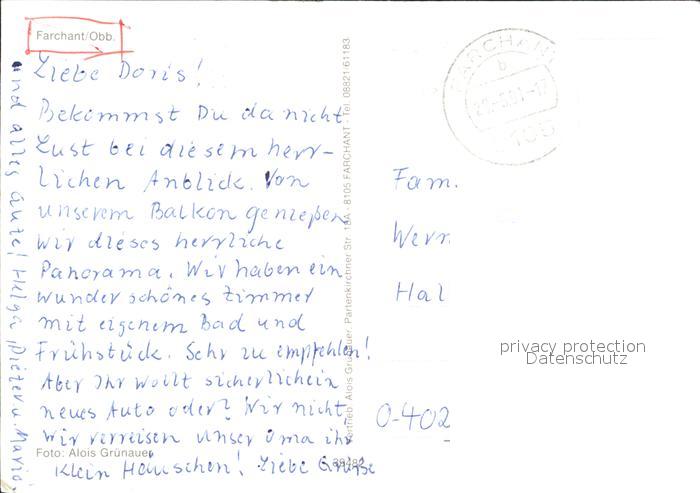 Farchant/Obb.
Liebe Doris!
Bekommst Du da nicht
Lust bei diesem herr-
lichen Anblick. Von
unserem Balkon genießen
wir dieses herrliche
Panorama. Wir haben ein
wunderschönes Zimmer
mit eigenem Bad und
Frühstück. Sehr zu empfehlen!
Aber Ihr wollt sicherlich ein
neues Auto oder? Wir nicht
wir verreisen unser Oma ihr
klein Häuschen! Liebe Grüße
und alles Gute! Helga, Dieter u. Mario
Foto: Alois Grünauer
Vertrieb: Alois Grünauer, Partenkirchner Str. 19A · 8105 FARCHANT · Tel. 08821-61183
FARCHANT
b
8105
Fam.
Wern
Hal
O-402
privacy protection
Datenschutz